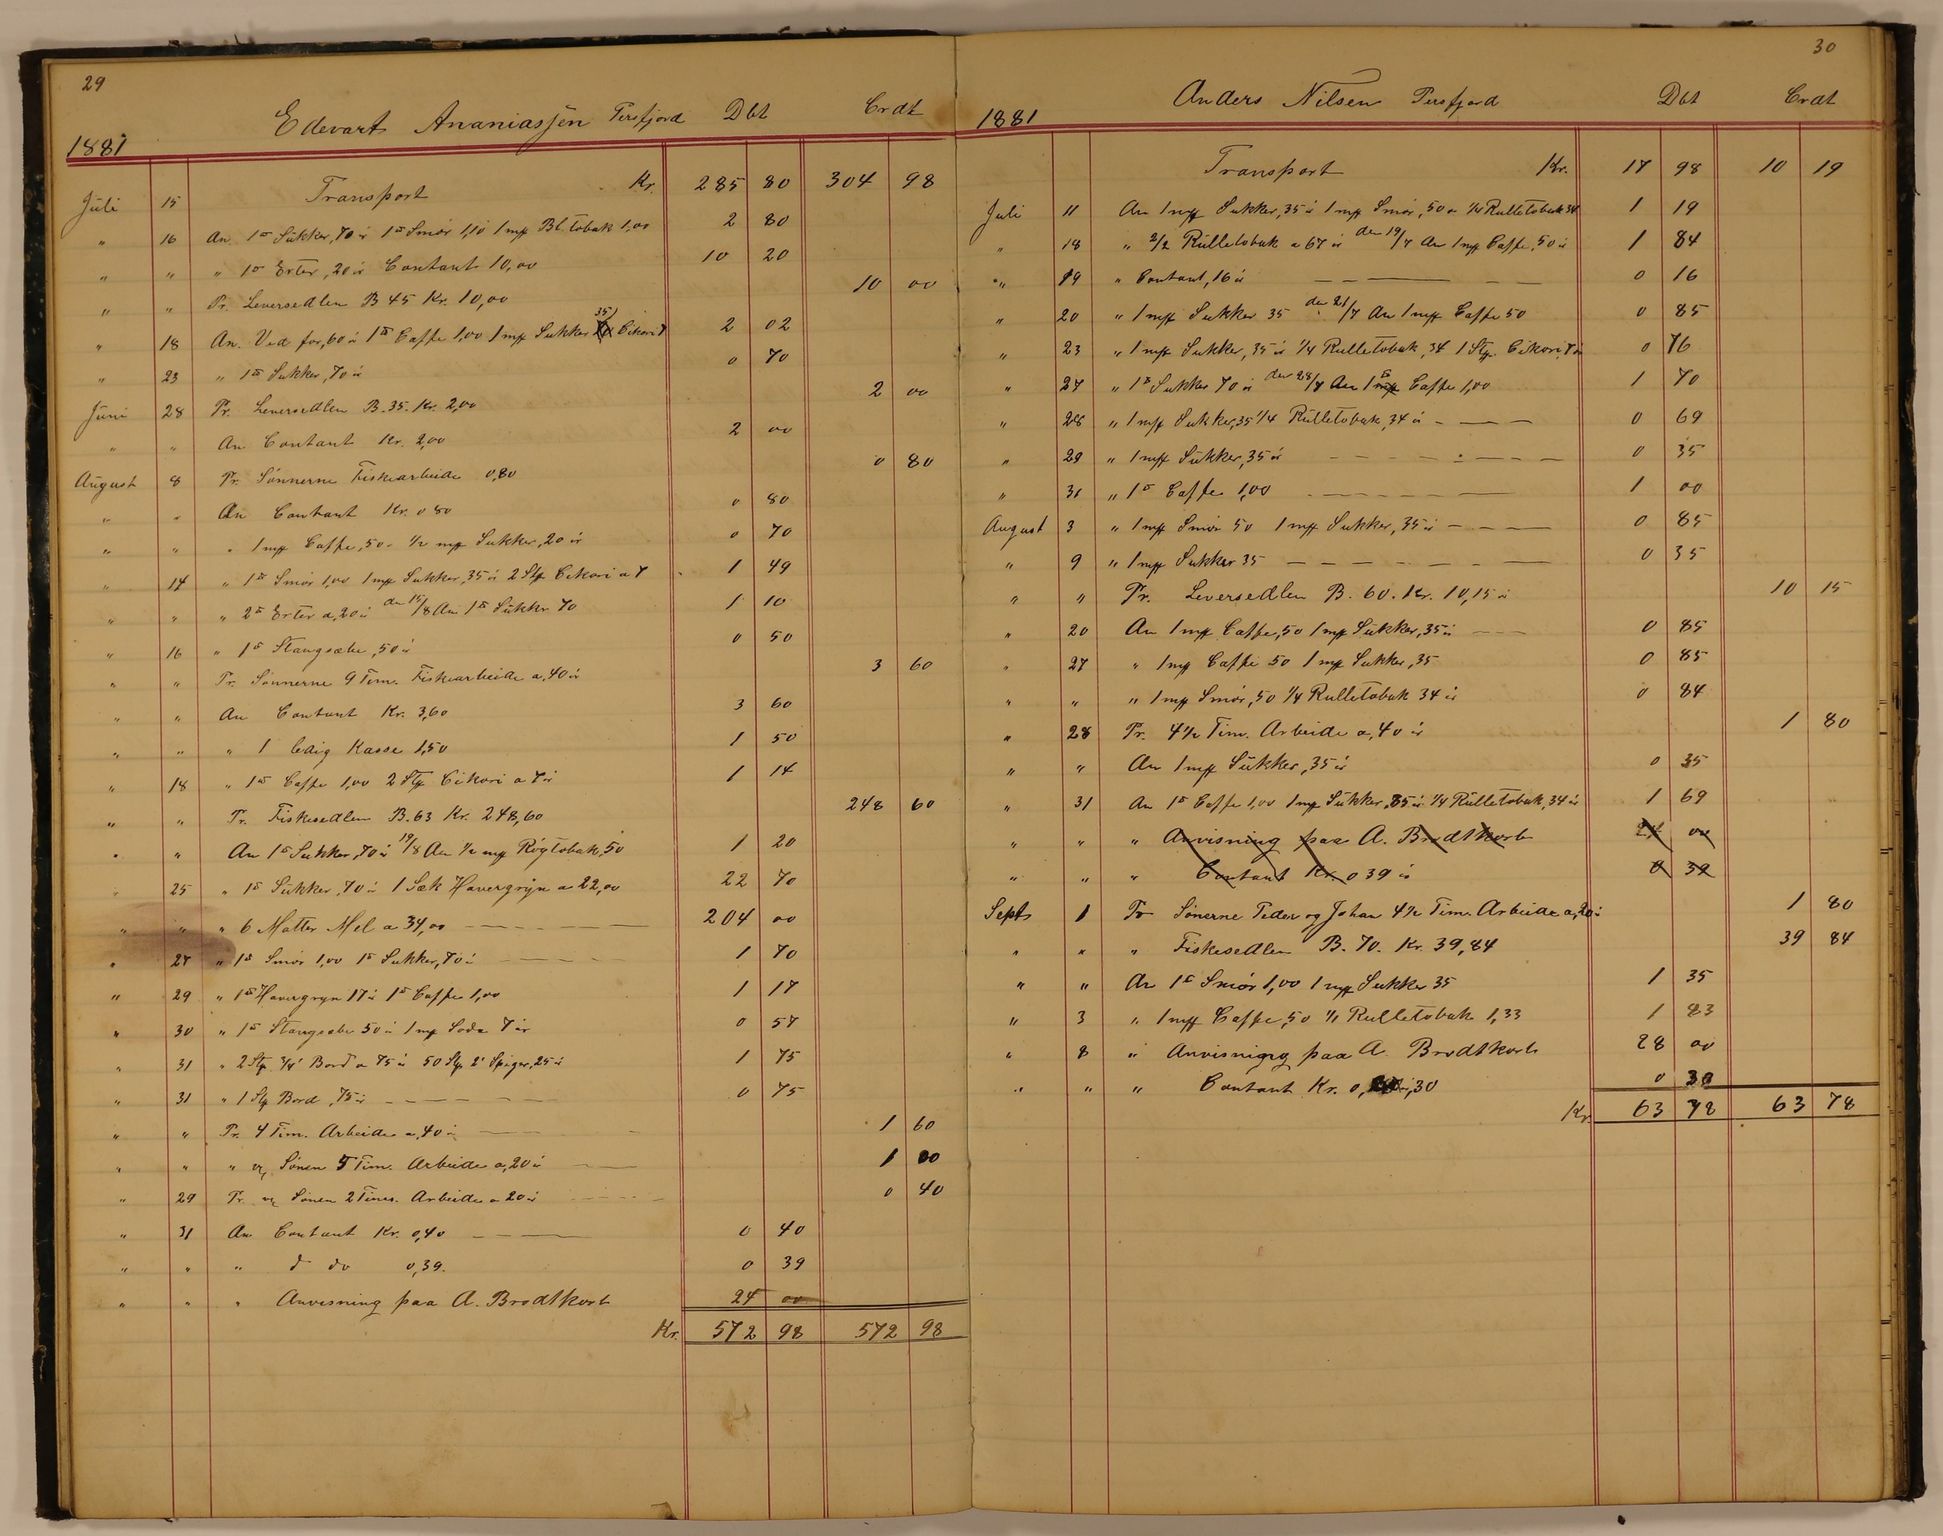 29
Edevart Ananiassen Persfjord Dbt Crdt
1881
Transport Kr. 285 80 304 98
Juli 15
" 16 An 1 Sukker, 70 1 Smör 1,10 1 mp Bl. tobak 1,00 2 80
" " " 1 Erter, 20 Contant 10,00 10 20
" " Pr. Leversedlen B 45 Kr. 10,00 10 00
" 18 An Ved for, 60 1 Caffe 1,00 1 mp Sukker 35 Cikori 7 2 02
" 23 " 1 Sukker, 70 0 70
Juni 28 Pr. Leversedlen B. 35. Kr. 2,00 2 00
" " An Contant Kr. 2,00 2 00
August 8 Pr. Sønnerne Fiskearbeide 0,80 0 80
" " An Contant Kr. 0 80 0 80
" " " 1 mp Caffe, 50 1/2 mp Sukker, 20 0 70
" 14 " 1 Smör 1,00 1 mp Sukker, 35 2 Stp Cikori a 7 1 49
" " " 2 Erter a, 20 den 15/8 An 1 Sukker 70 1 10
" 16 " 1 Stangsæbe, 50 0 50
" " Pr. Sønnerne 9 Tim. Fiskearbeide a, 40 3 60
" " An Contant Kr. 3,60 3 60
" " " 1 ledig Kasse 1,50 1 50
" 18 " 1 Caffe 1,00 2 Stp Cikori a 7 1 14
" " Pr. Fiskesedlen B. 63 Kr. 248,60 248 60
" " An 1 Sukker, 70 19/8 An 1/2 mp Røgtobak, 50 1 20
" 25 " 1 Sukker, 70 1 Sæk Havergryn a 22,00 22 70
" " " 6 Matter Mel a 34,00 204 00
" 27 " 1 Smör 1,00 1 Sukker, 70 1 70
" 29 " 1 Havergryn 17 1 Caffe 1,00 1 17
" 30 " 1 Stangsæbe 50 1 mp Soda 7 0 57
" 31 " 2 Stp 3/4" Bord a 75 50 Stp 2" Spiger, 25 1 75
" 31 " 1 Stp Bord, 75 0 75
" " Pr. 4 Tim. Arbeide a, 40 1 60
" " " Sønen 5 Tim. Arbeide a, 20 1 00
" 29 Pr. Sønen 2 Times Arbeide a 20 0 40
" 31 An Contant Kr. 0,40 0 40
" " " d do 0,39. 0 39
" " " Anvisning paa A. Brodtkorb 24 00
Kr. 572 98 572 98
30
Anders Nilsen Persfjord Dbt Crdt
1881
Transport Kr. 17 98 10 19
Juli 11 An 1 mp Sukker, 35 1 mp Smör, 50 1/4 Rulletobak 34 1 19
" 18 " 2/2 Rulletobak a 67 den 19/7 An 1 mp Caffe, 50 1 84
" 19 " Contant, 16 0 16
" 20 " 1 mp Sukker 35 den 21/7 An 1 mp Caffe 50 0 85
" 23 " 1 mp Sukker, 35 1/4 Rulletobak, 34 1 Stp. Cikori, 7 0 76
" 27 " 1 Sukker 70 den 28/7 An 1 Caffe 1,00 1 70
" 28 " 1 mp Sukker, 35 1/4 Rulletobak, 34 0 69
" 29 " 1 mp Sukker, 35 0 35
" 31 " 1 Caffe 1,00 1 00
August 3 " 1 mp Smör 50 1 mp Sukker, 35 0 85
" 9 " 1 mp Sukker 35 0 35
" " Pr. Leversedlen B. 60. Kr. 10,15 10 15
" 20 An 1 mp Caffe, 50 1 mp Sukker, 35 0 85
" 27 " 1 mp Caffe 50 1 mp Sukker, 35 0 85
" " " 1 mp Smör, 50 1/4 Rulletobak 34 0 84
" 28 Pr. 4 1/2 Tim. Arbeide a, 40 1 80
" " An 1 mp Sukker, 35 0 35
" 31 An 1 Caffe 1,00 1 mp Sukker, 35 1/4 Rulletobak, 34 1 69
" " " Anvisning paa A. Brodtkorb 00
" " " Contant Kr. 0 39 0 39
Sept. 1 Pr Sönerne Peder og Johan 4 1/2 Tim. Arbeide a, 20 1 80
" " " Fiskesedlen B. 70. Kr. 39,84 39 84
" " An 1 Smör 1,00 1 mp Sukker 35 1 35
" 3 " 1 mp Caffe, 50 1/1 Rulletobak 1,33 1 83
" 8 " Anvisning paa A. Brodtkorb 28 00
" " " Contant Kr. 0, 30 0 30
Kr. 63 78 63 78